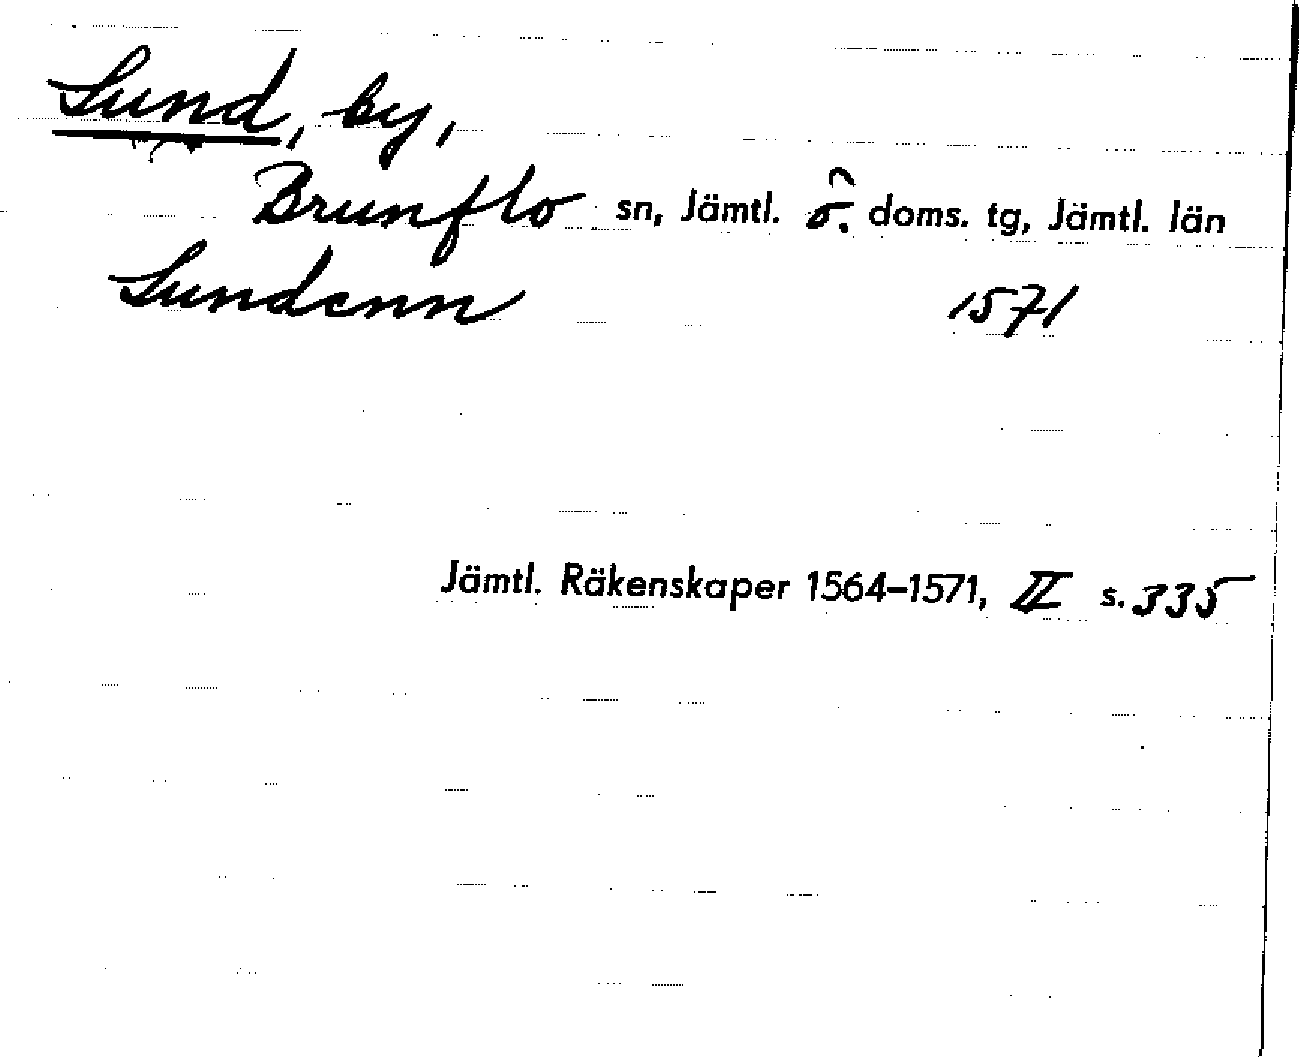 Lund, by,
Brunflo sn, Jämtl. ö. doms. tg, Jämtl. län
Lundenn 1571
Jämtl. Räkenskaper 1564–1571, II s. 335